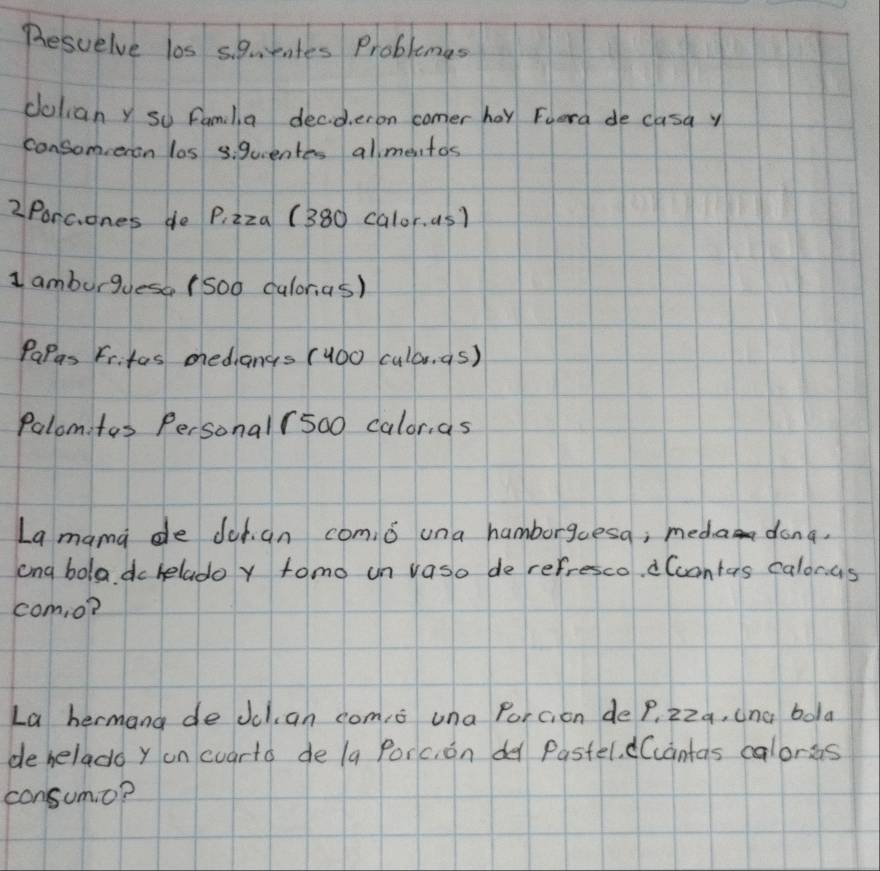 Resuelve los siguientes Problemas
Julian y su familia decidieron comer hoy Fuera de casa y
consomieron los siguientes alimentos
2 Porciones de Pizza (380 calorias)
1 amburguesa (500 calorias)
Papas Fritas medianas (400 calorias)
Palomitas Personal (500 calorias
La mamá de Julian comió una hamburguesa, meda dona,
una bola de helado y tomo un vaso de refresco. ¿Cuantas calorias
comio?
La hermana de Julian comió una Porcion de Pizza, una bola
de helado y un cuarto de la Porción del Pastel. ¿Cuántas calorias
consumio?